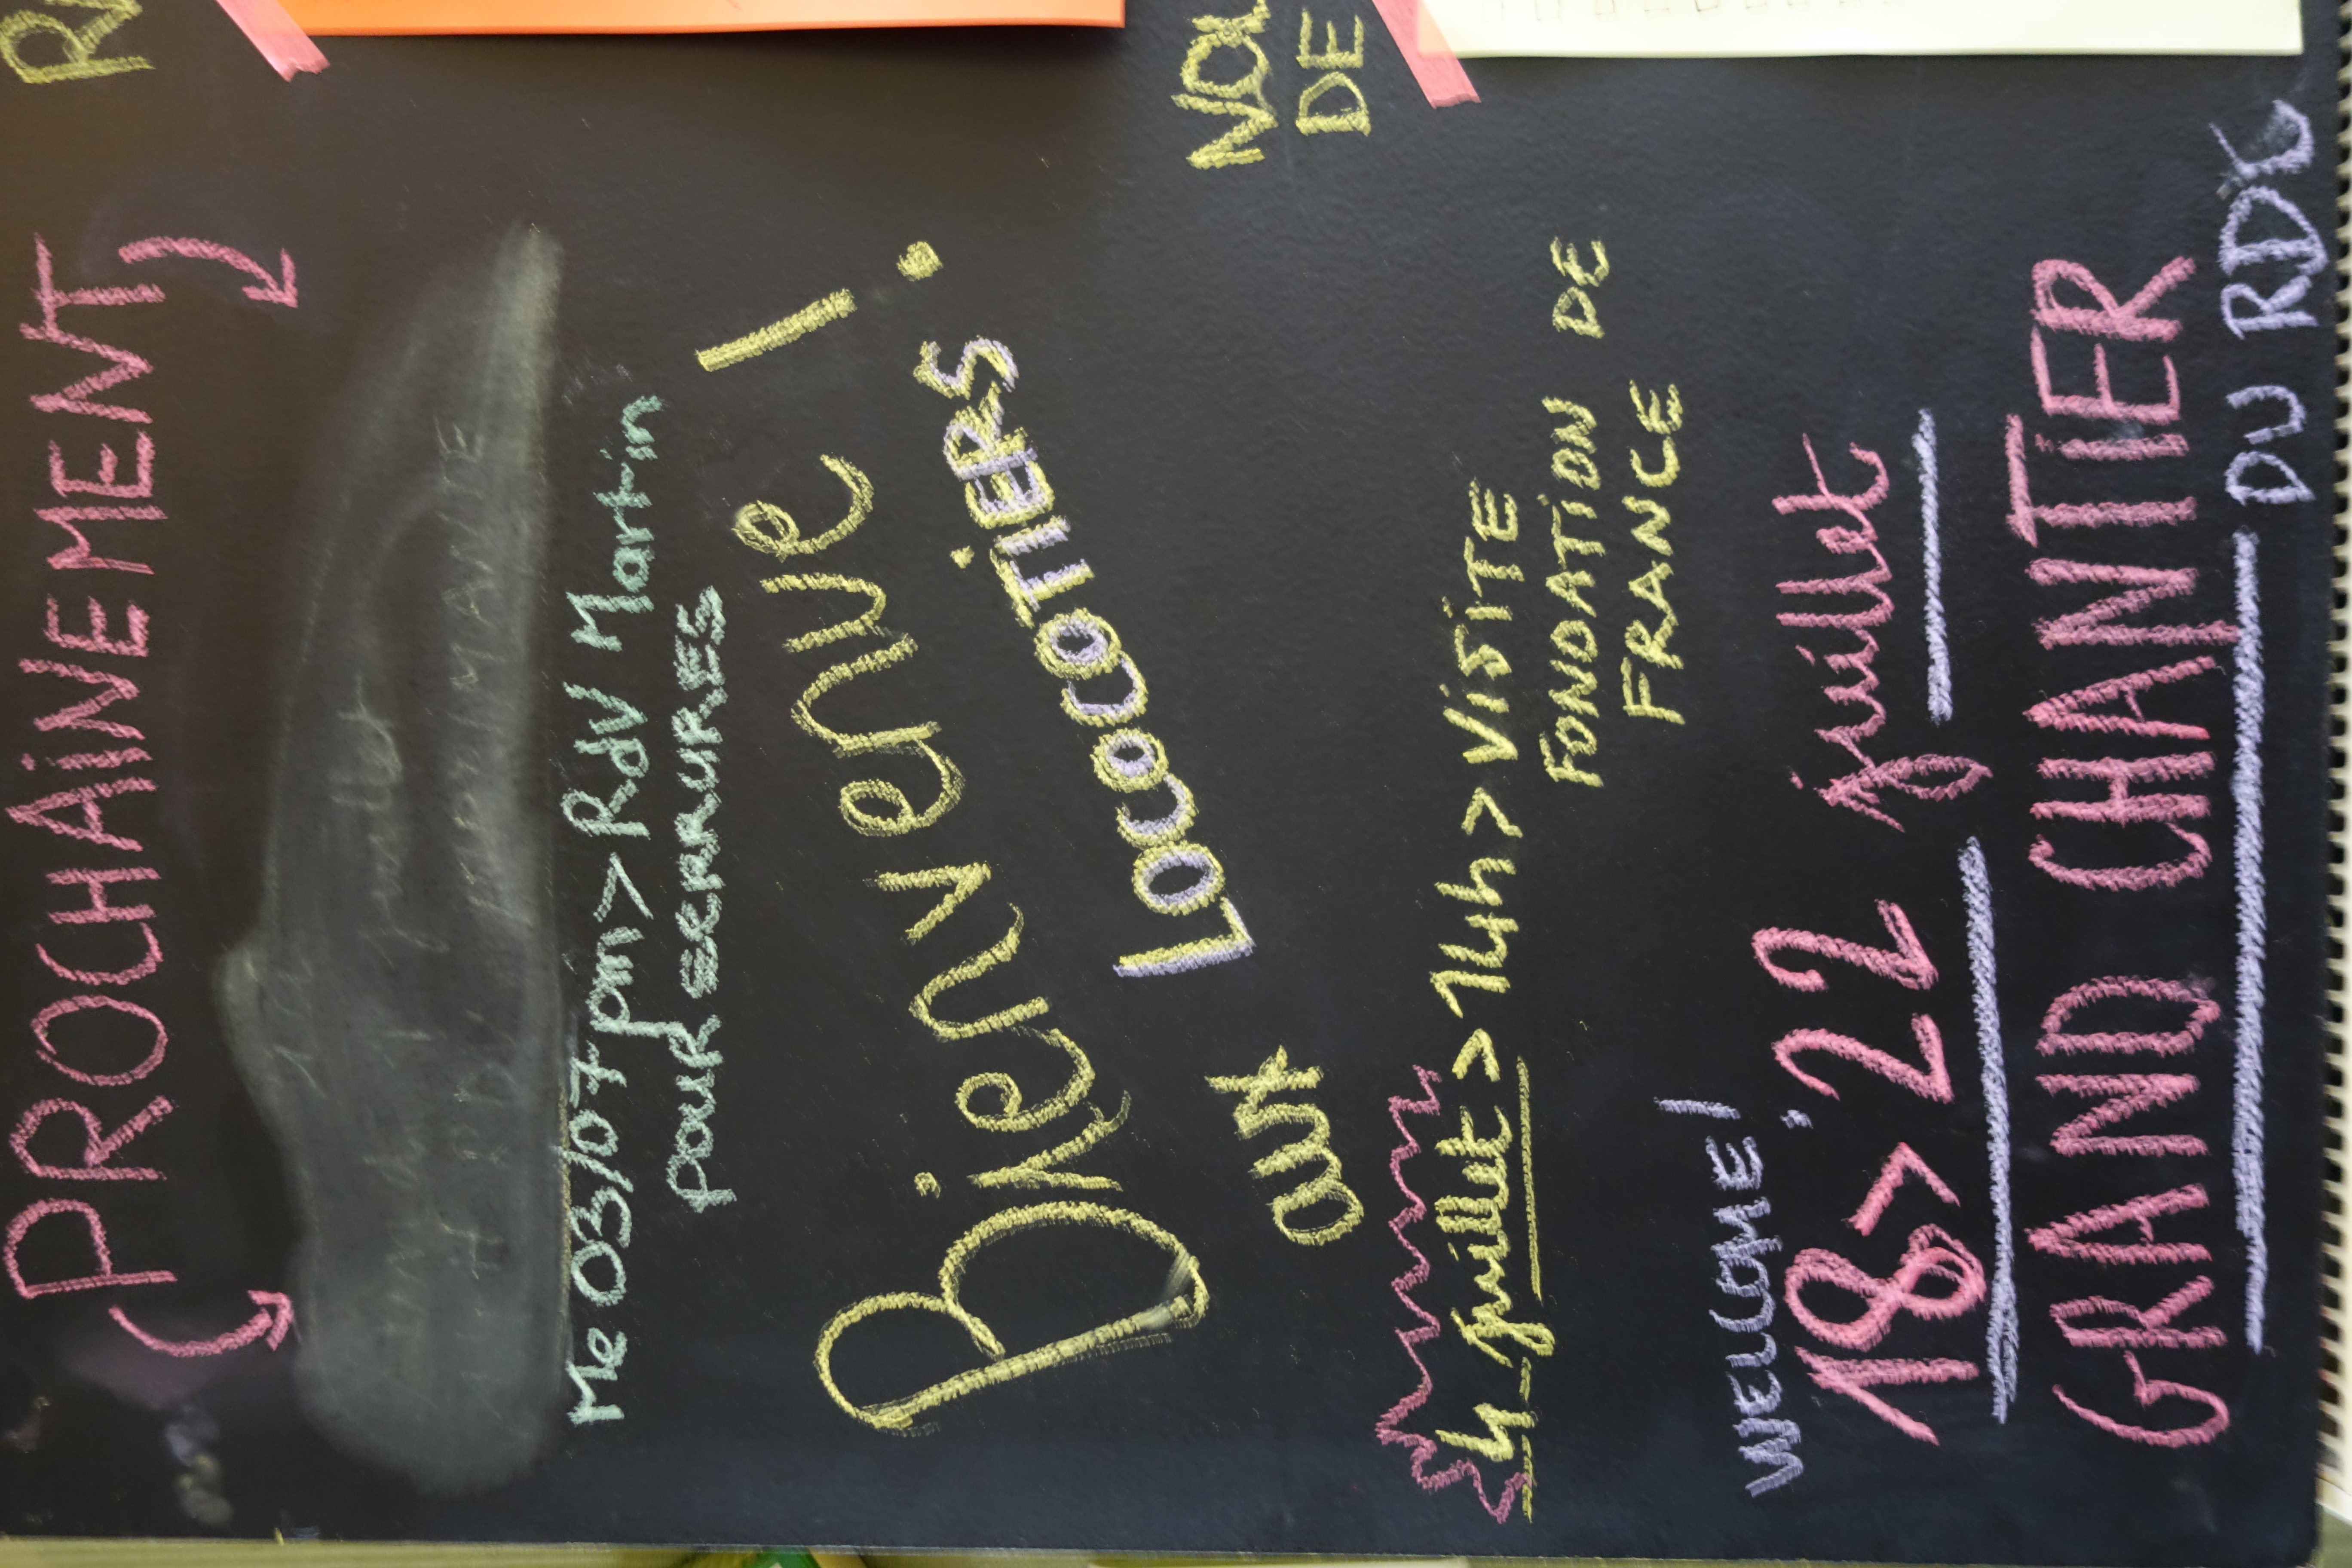 PROCHAINEMENT
Me 03/07 pm > RdV Martin
pour SERRURES
Bienvenue !
aux LOCOCOTIERS
4 juillet > 14h > VISITE
FONDATION DE
FRANCE
WELCOME !
18 > 22 juillet
GRAND CHANTIER
DU RDC
DE